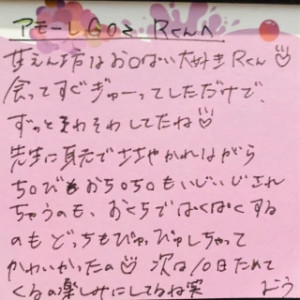 アモーレGOミ Rくんへ
甘えん坊はお〇ぱい大好きRくん♡
会ってすぐぎゅーってしただけで、
ずっとそわそわしてたね♡
先生に耳元でささやかれながら
ち〇びもおち〇ち〇もいじいじされ
ちゃうのも、おくちでぱくぱくする
のもどっちもぴゅっぴゅしちゃって
かわいかったの♡ 次は10日ためて
くるの楽しみにしてるね笑